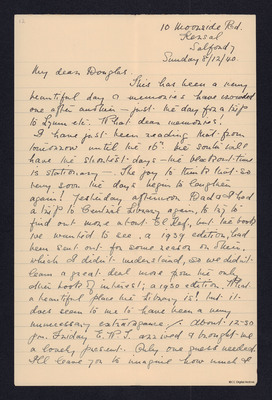 10 Moorside Rd.
Kersal
Salford 7
Sunday 8/12/40.
My dear Douglas,
This has been a very
beautiful day & memories have crowded
one after another – just the day for a trip
to Lymm etc. What dear memories!
I have just been reading that from
tomorrow until the 16th the south will
have the shortest days – the blackout time
is stationary – The joy to think that so
very soon the days begin to lengthen
again! Yesterday afternoon Dad & I had
a trip to Central Library again, to try to
find out more about El Kef, but the book
we wanted to see, a 1939 edition, had
been sent out for some reason or other,
which I didn't understand, so we didn't
learn a great deal more from the only
other book of interest, a 1930 edition. What
a beautiful place the Library is! but it
does seem to me to have been a very
unnecessary extravagance. About 12-30
pm. Friday E.R.T. arrived & brought me
a lovely present. Only one guess needed.
I'll leave you to imagine how much of